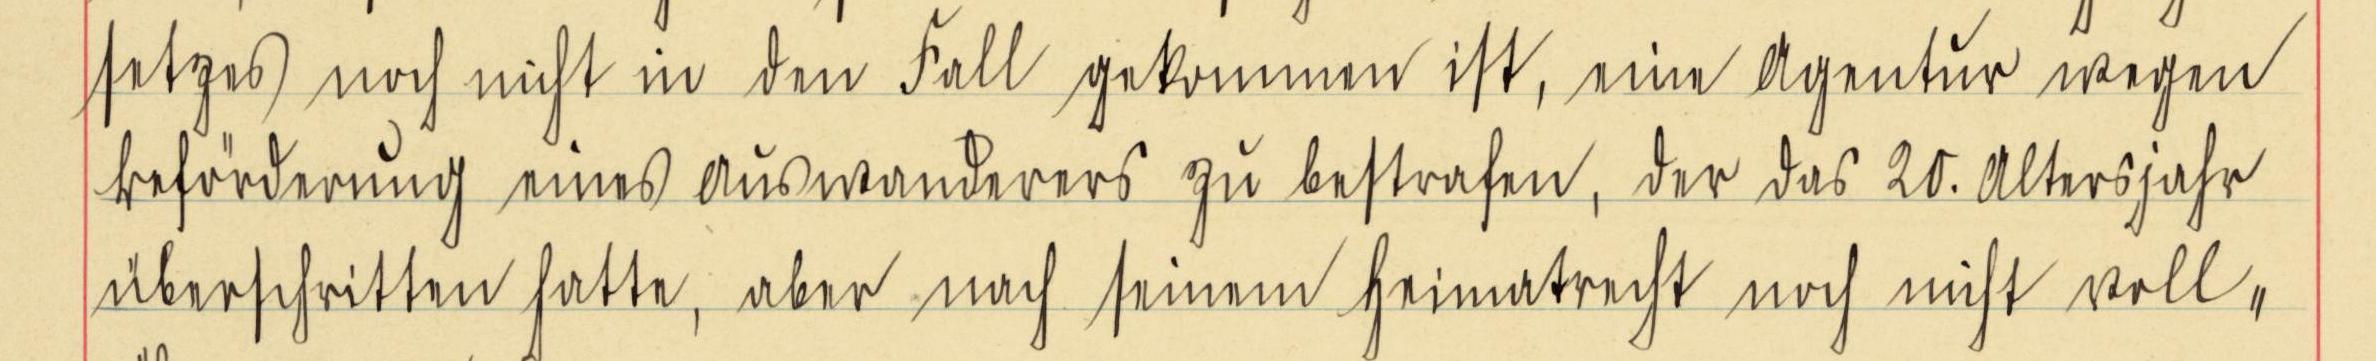 setzes noch nicht in den Fall gekommen ist, eine Agentur wegen
Beförderung eines Auswanderers zu bestrafen, der das 20. Altersjahr
überschritten hatte, aber nach seinem Heimatrecht noch nicht voll„